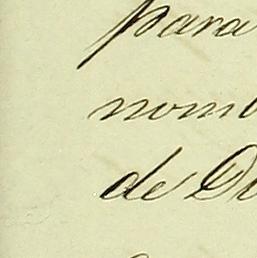 para
nomb
de Di